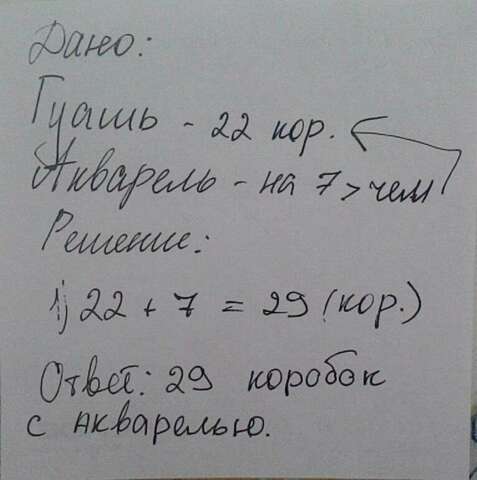 Дано:
Гуашь - 22 кор.
Акварель - на 7 > чем
Решение:
1) 22 + 7 = 29 (кор.)
Ответ: 29 коробок
с акварелью.